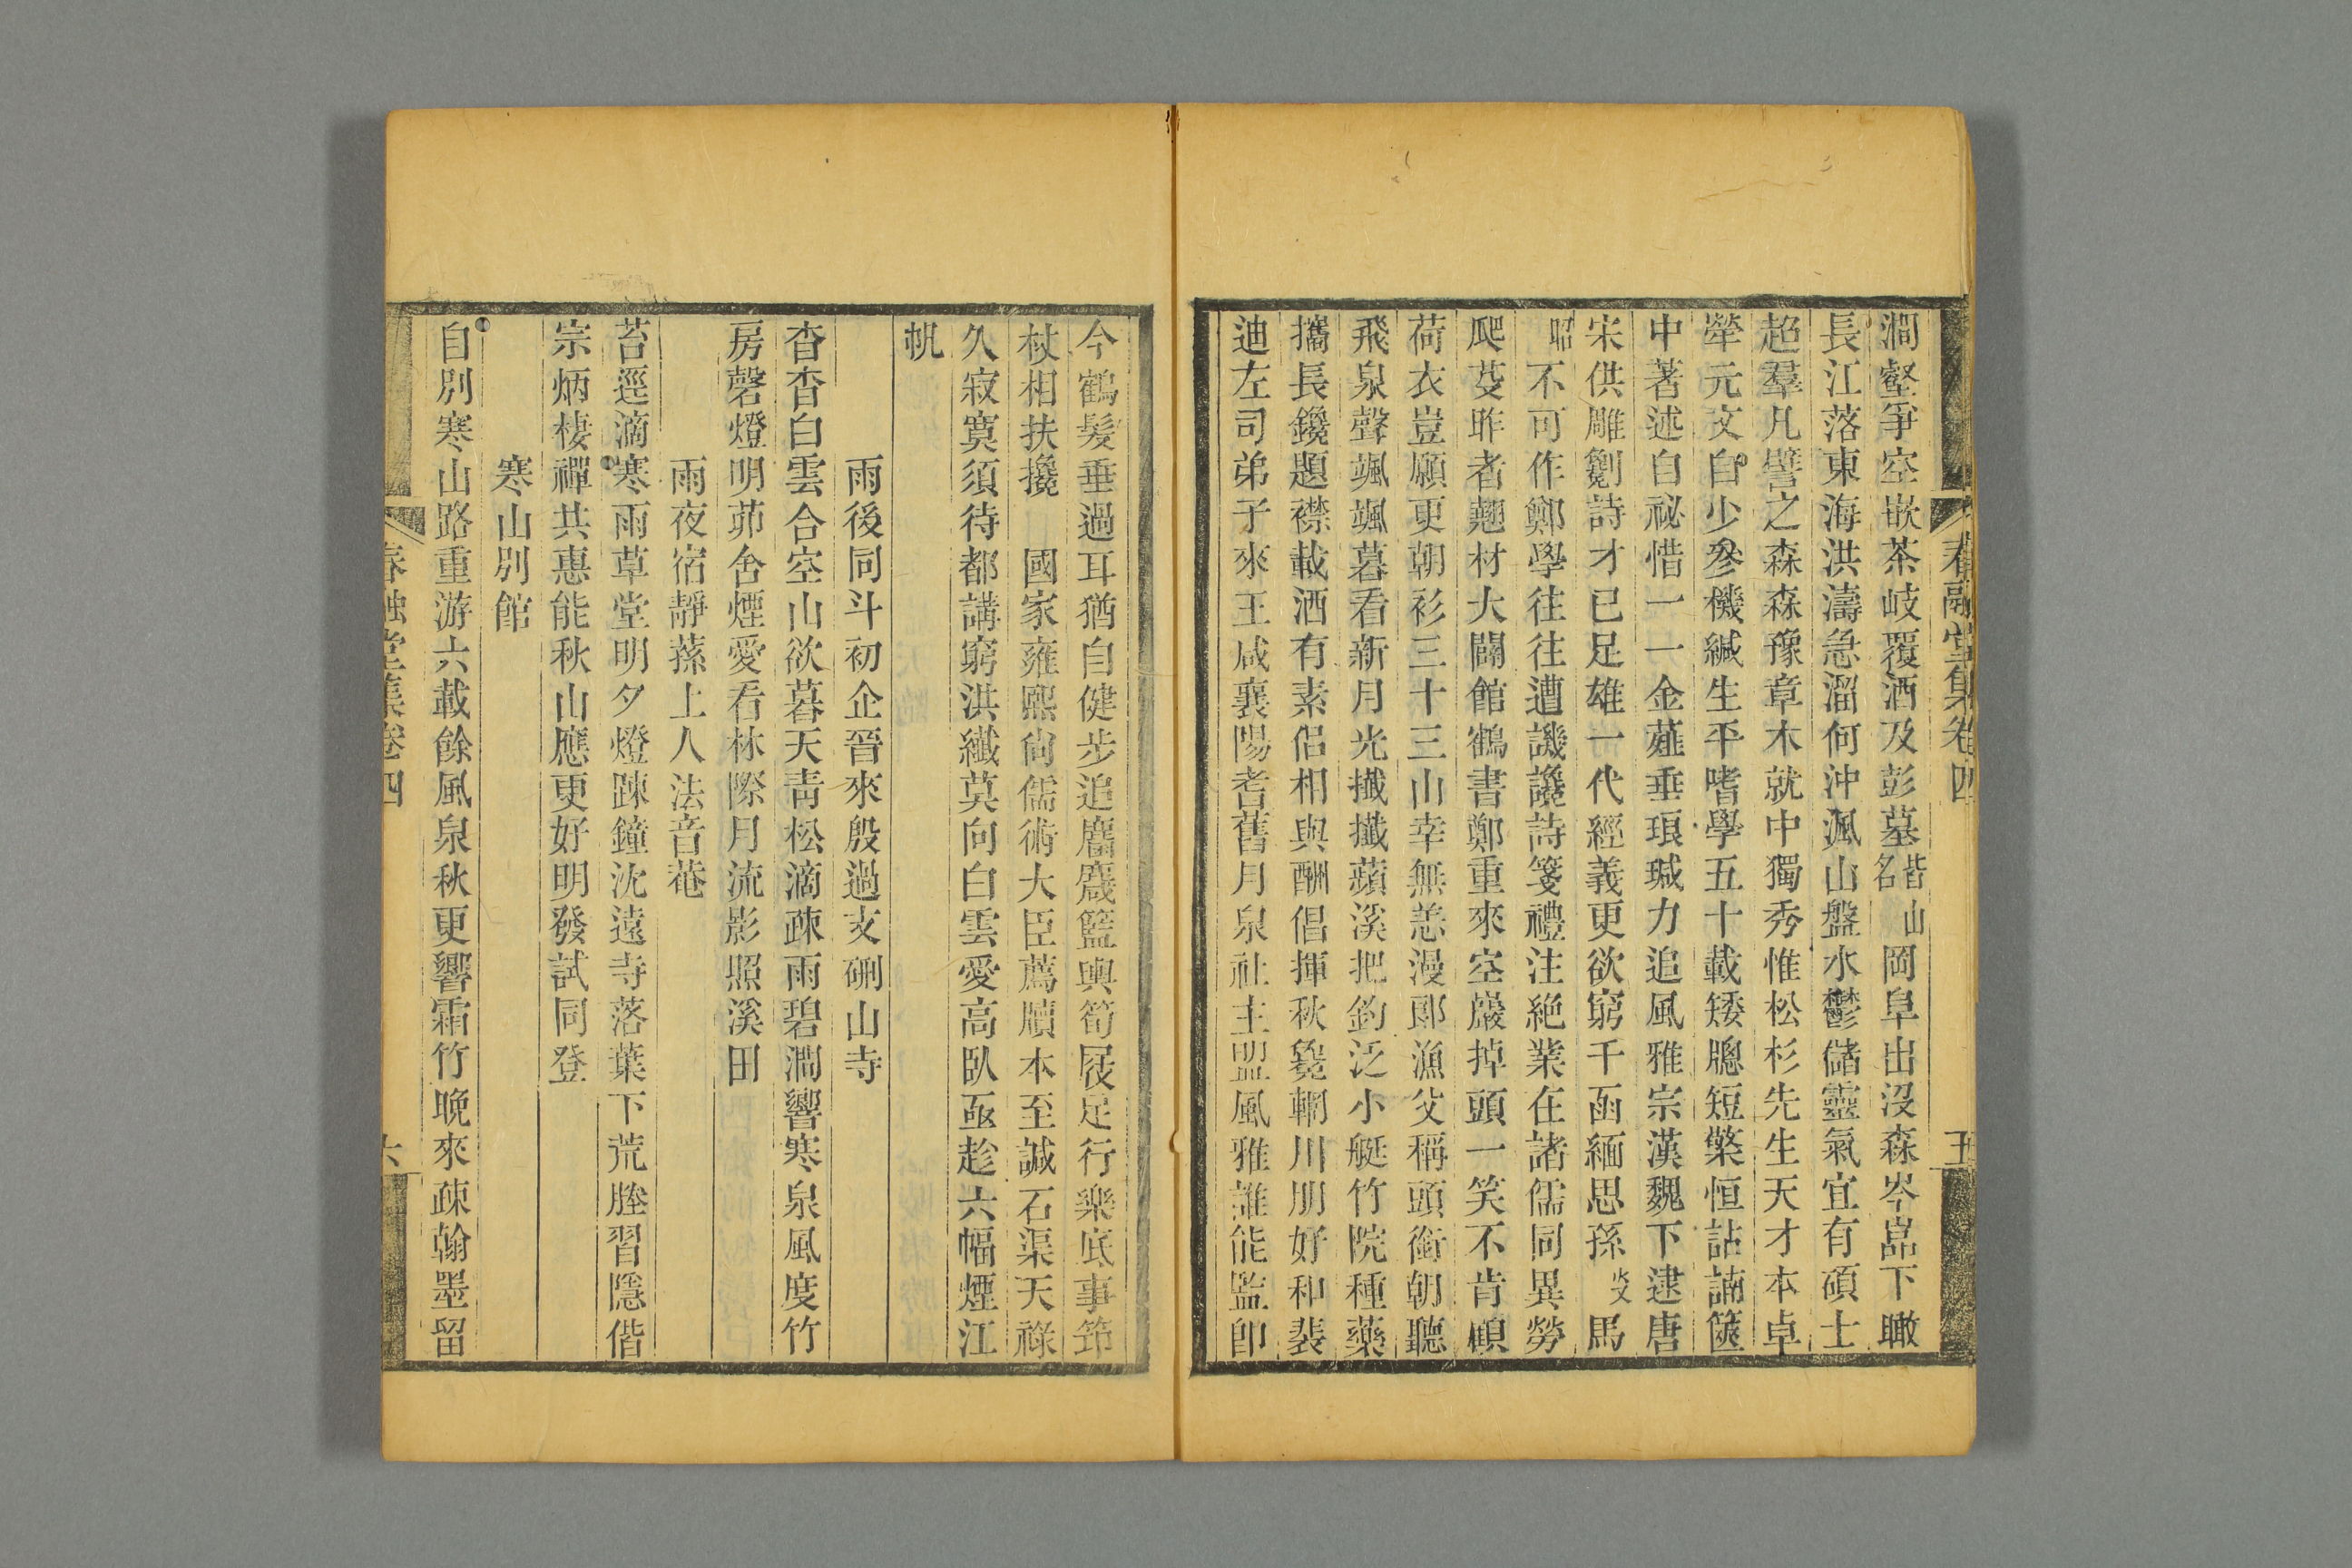 春融堂集卷四
五
澗壑爭空嵌茶岐覆酒及彭墓皆山名岡阜出沒森岑嵓下瞰
長江落東海洪濤急溜何沖渢山盤水鬱儲靈氣宜有碩士
超羣凡譬之森森豫章木就中獨秀惟松杉先生天才本卓
犖元文自少參機緘生平嗜學五十載矮牕短檠恒詀諵篋
中著述自祕惜一一金薤垂琅瑊力追風雅宗漢魏下逮唐
宋供雕劖詩才已足雄一代經義更欲窮千函緬思孫炎馬
昭不可作鄭學往往遭譏讒詩箋禮注絶業在諸儒同異勞
爬芟昨者翹材大闢館鶴書鄭重來空巖掉頭一笑不肯顧
荷衣豈願更朝衫三十三山幸無恙漫郎漁父稱頭銜朝聽
飛泉聲颯颯暮看新月光攕攕蘋溪把釣泛小艇竹院種藥
攜長鑱題襟載酒有素侶相與酬倡揮秋毚輞川朋好和裴
迪左司弟子來王咸襄陽耆舊月泉社主盟風雅誰能監卽
今鶴髮垂過耳猶自健步追麢麙籃輿筍屐足行樂底事笻
杖相扶攙　國家雍熙尙儒術大臣薦牘本至諴石渠天祿
久寂寞須待都講窮洪纖莫向白雲愛高臥亟趁六幅煙江
帆
雨後同斗初企晉來殷過支硎山寺
杳杳白雲合空山欲暮天靑松滴疎雨碧澗響寒泉風度竹
房磬燈明茆舍煙愛看林際月流影照溪田
雨夜宿靜蓀上人法音菴
苔逕滴寒雨草堂明夕燈踈鐘沈遠寺落葉下荒塍習隱偕
宗炳棲禪共惠能秋山應更好明發試同登
寒山別館
自別寒山路重游六載餘風泉秋更響霜竹晚來疎翰墨留
春融堂集卷四
六